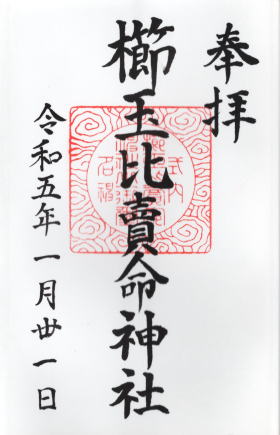 奉拝
櫛玉比賣命神社
令和五年一月丗一日